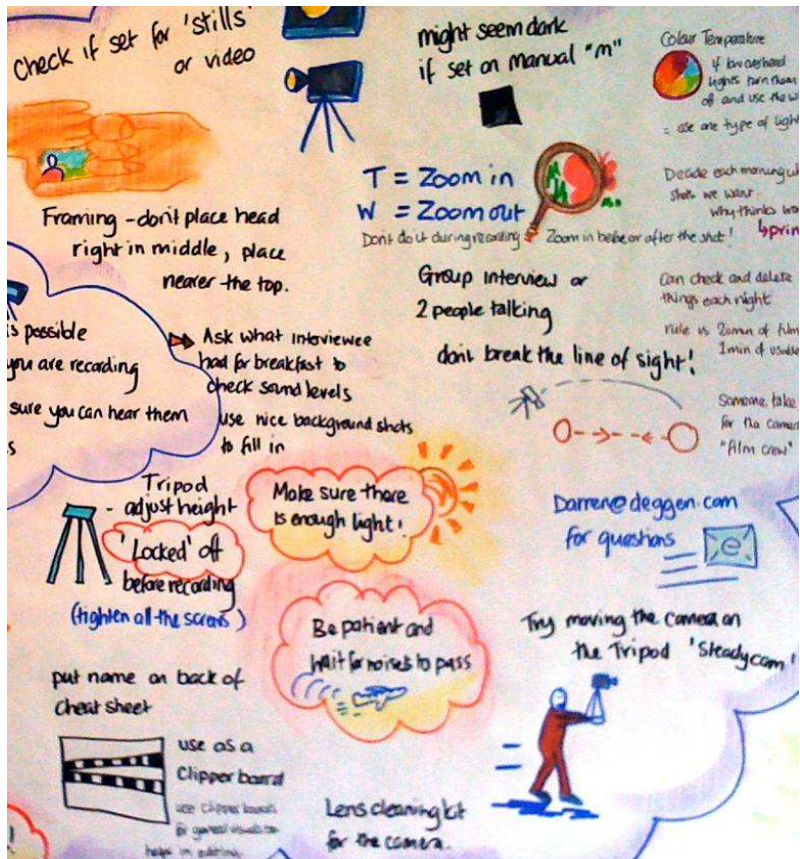 Check if set for 'stills'
or video
might seem dark
if set on manual "m"
Colour Temperature
if low overhead
lights turn them
off and use the
= use one type of light
T = Zoom in
W = Zoom out
Don't do it during recording
Zoom in before or after the shot!
Decide each morning
shots we want.
why thinks
Framing - don't place head
right in middle, place
nearer the top.
Group interview or
2 people talking
don't break the line of sight!
Can check and delete
things each night
rule is 20min of film
1min of
Someone take
for the camera
"film crew"
is possible
you are recording
sure you can hear them
s
Ask what interviewee
had for breakfast to
check sound levels
use nice background shots
to fill in
Tripod
- adjust height
'Locked' off
before recording
(tighten all the screws)
Make sure there
is enough light!
Darren@deggen.com
for questions
e
Be patient and
wait for noises to pass
Try moving the camera on
the Tripod 'Steadycam'
put name on back of
cheat sheet
use as a
Clipper board
use clipper boards
for
helps in editing.
Lens cleaning kit
for the camera.